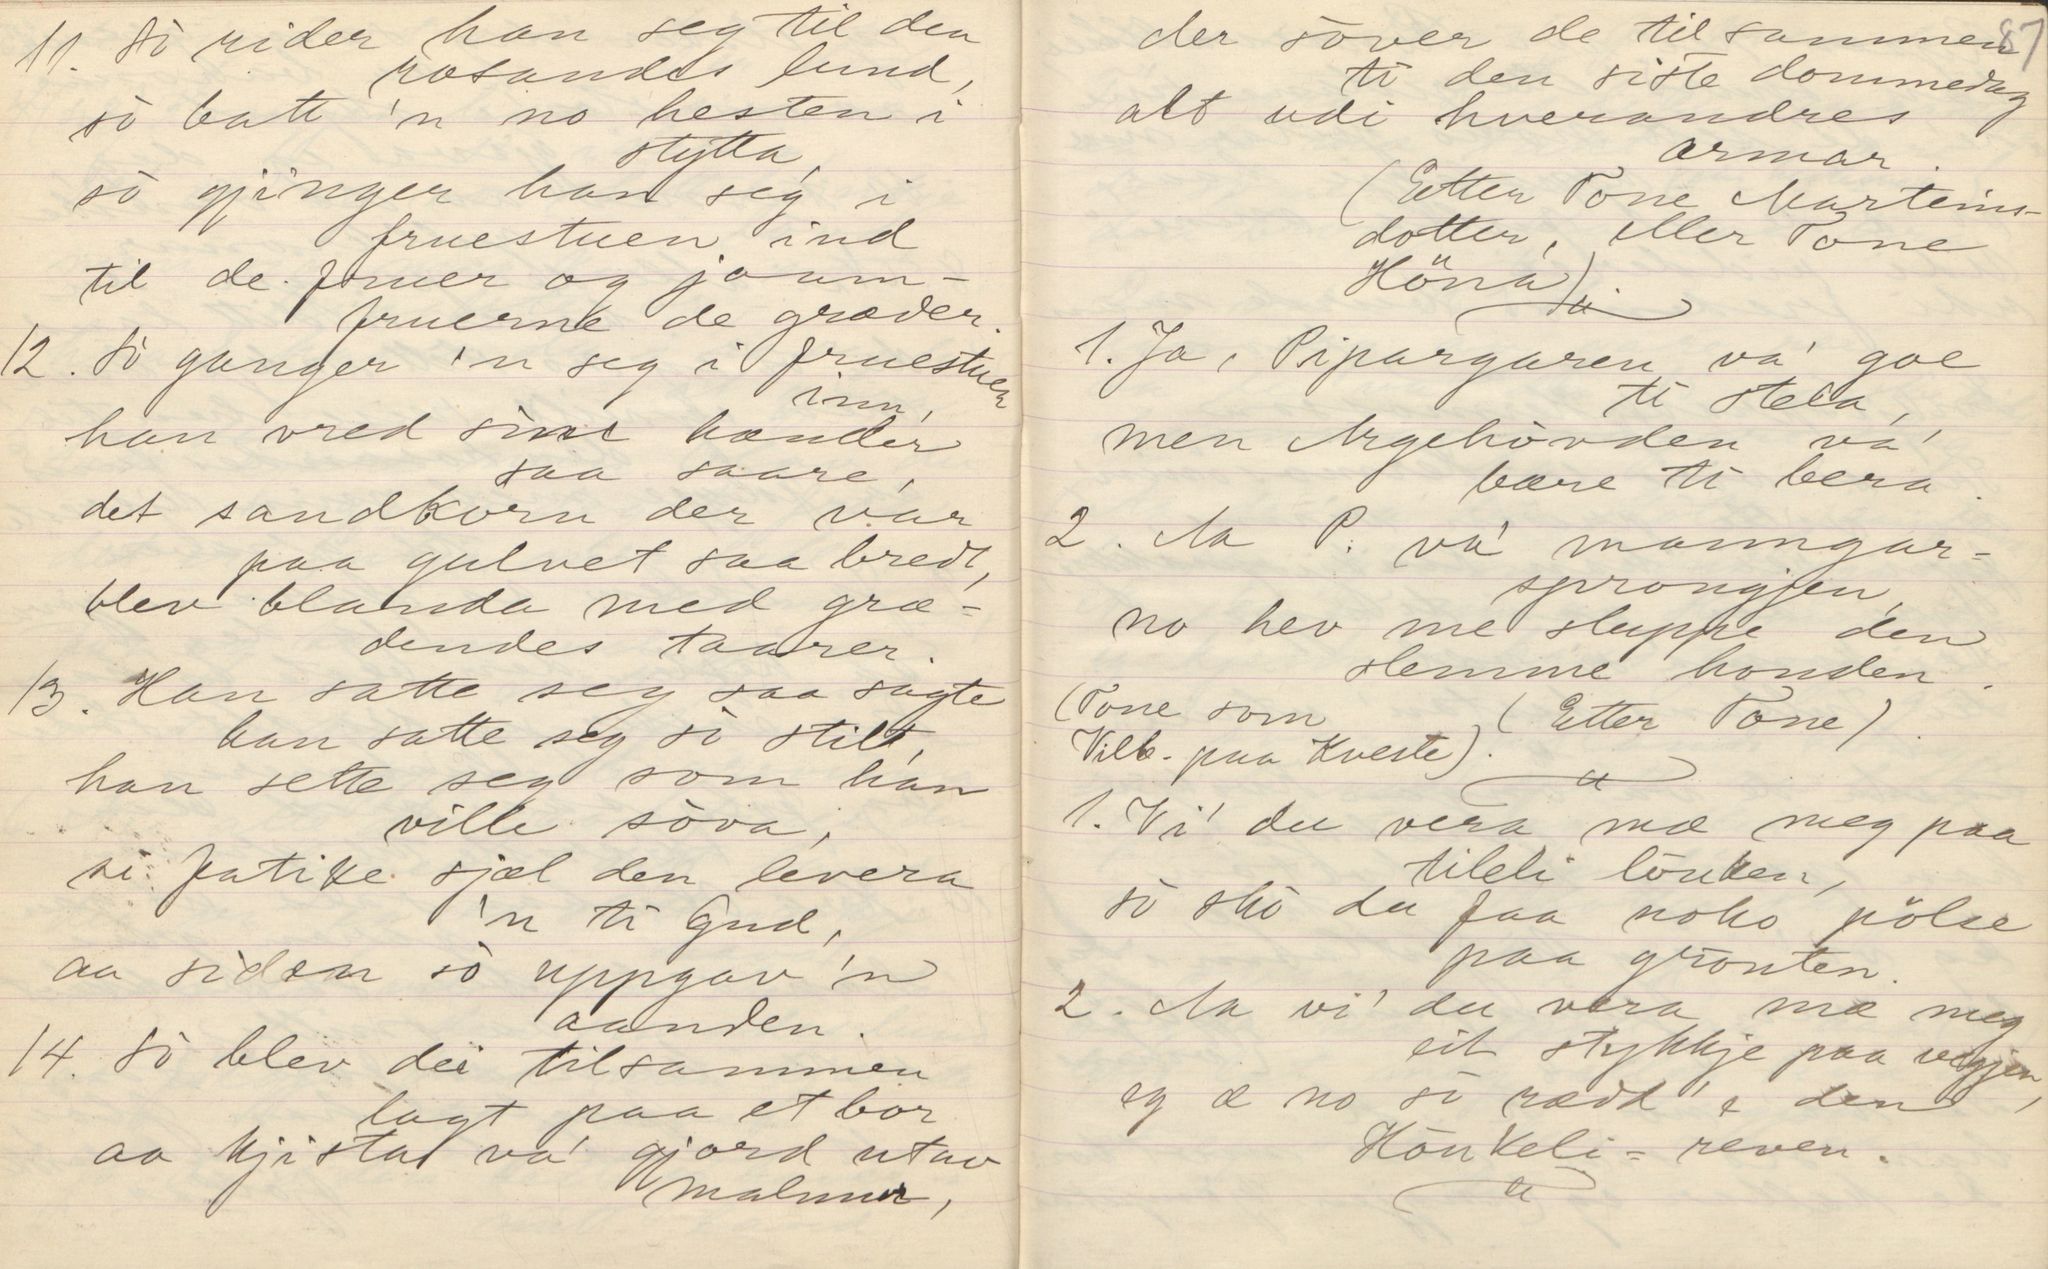 11. Sò rider han seg til den
rosandes lund,
sò batt 'n no hesten i
stytta,
sò gjinger han seg i
fruestuen ind
til de fruer og joum-
fruerne de græder.
12. Sò ganger 'n seg i fruestuen
inn,
han vred sine hænder
saa saare,
det sandkorn der var
paa gulvet saa bredt,
blev blanda med græ-
dendes taarer.
13. Han satte seg saa sagte
han satte seg sò stilt,
han sette seg som han
ville sòva,
si fatike sjæl den levera
'n ti Gud,
aa sidæn sò uppgav 'n
aanden.
14. Sò blev dei tilsammen
lagt paa et bor
aa kjista va' gjord utav
malmer,
87
der sòver de tilsammen
ti den siste dommedag
alt udi hverandres
armar.
(Etter Tone Marteins-
dotter, eller Tone
Hönå).
1. Ja, Pipargaren va' goe
ti stela,
men Argehòvden va'
bære ti bera.
2. Aa P. va' manngar-
sprongjen,
no hev me sluppe den
slemme honden.
(Tone som
Vilb. paa Kveste).
(Etter Tone).
1. Vi' du vera mæ meg paa
tileli lònken,
sò skò du faa noko pölse
paa grònten.
2. Aa vi' du vera mæ meg
eit stykkje paa vegjen,
eg æ no sò rædd' e den
Hònkeli-reven.